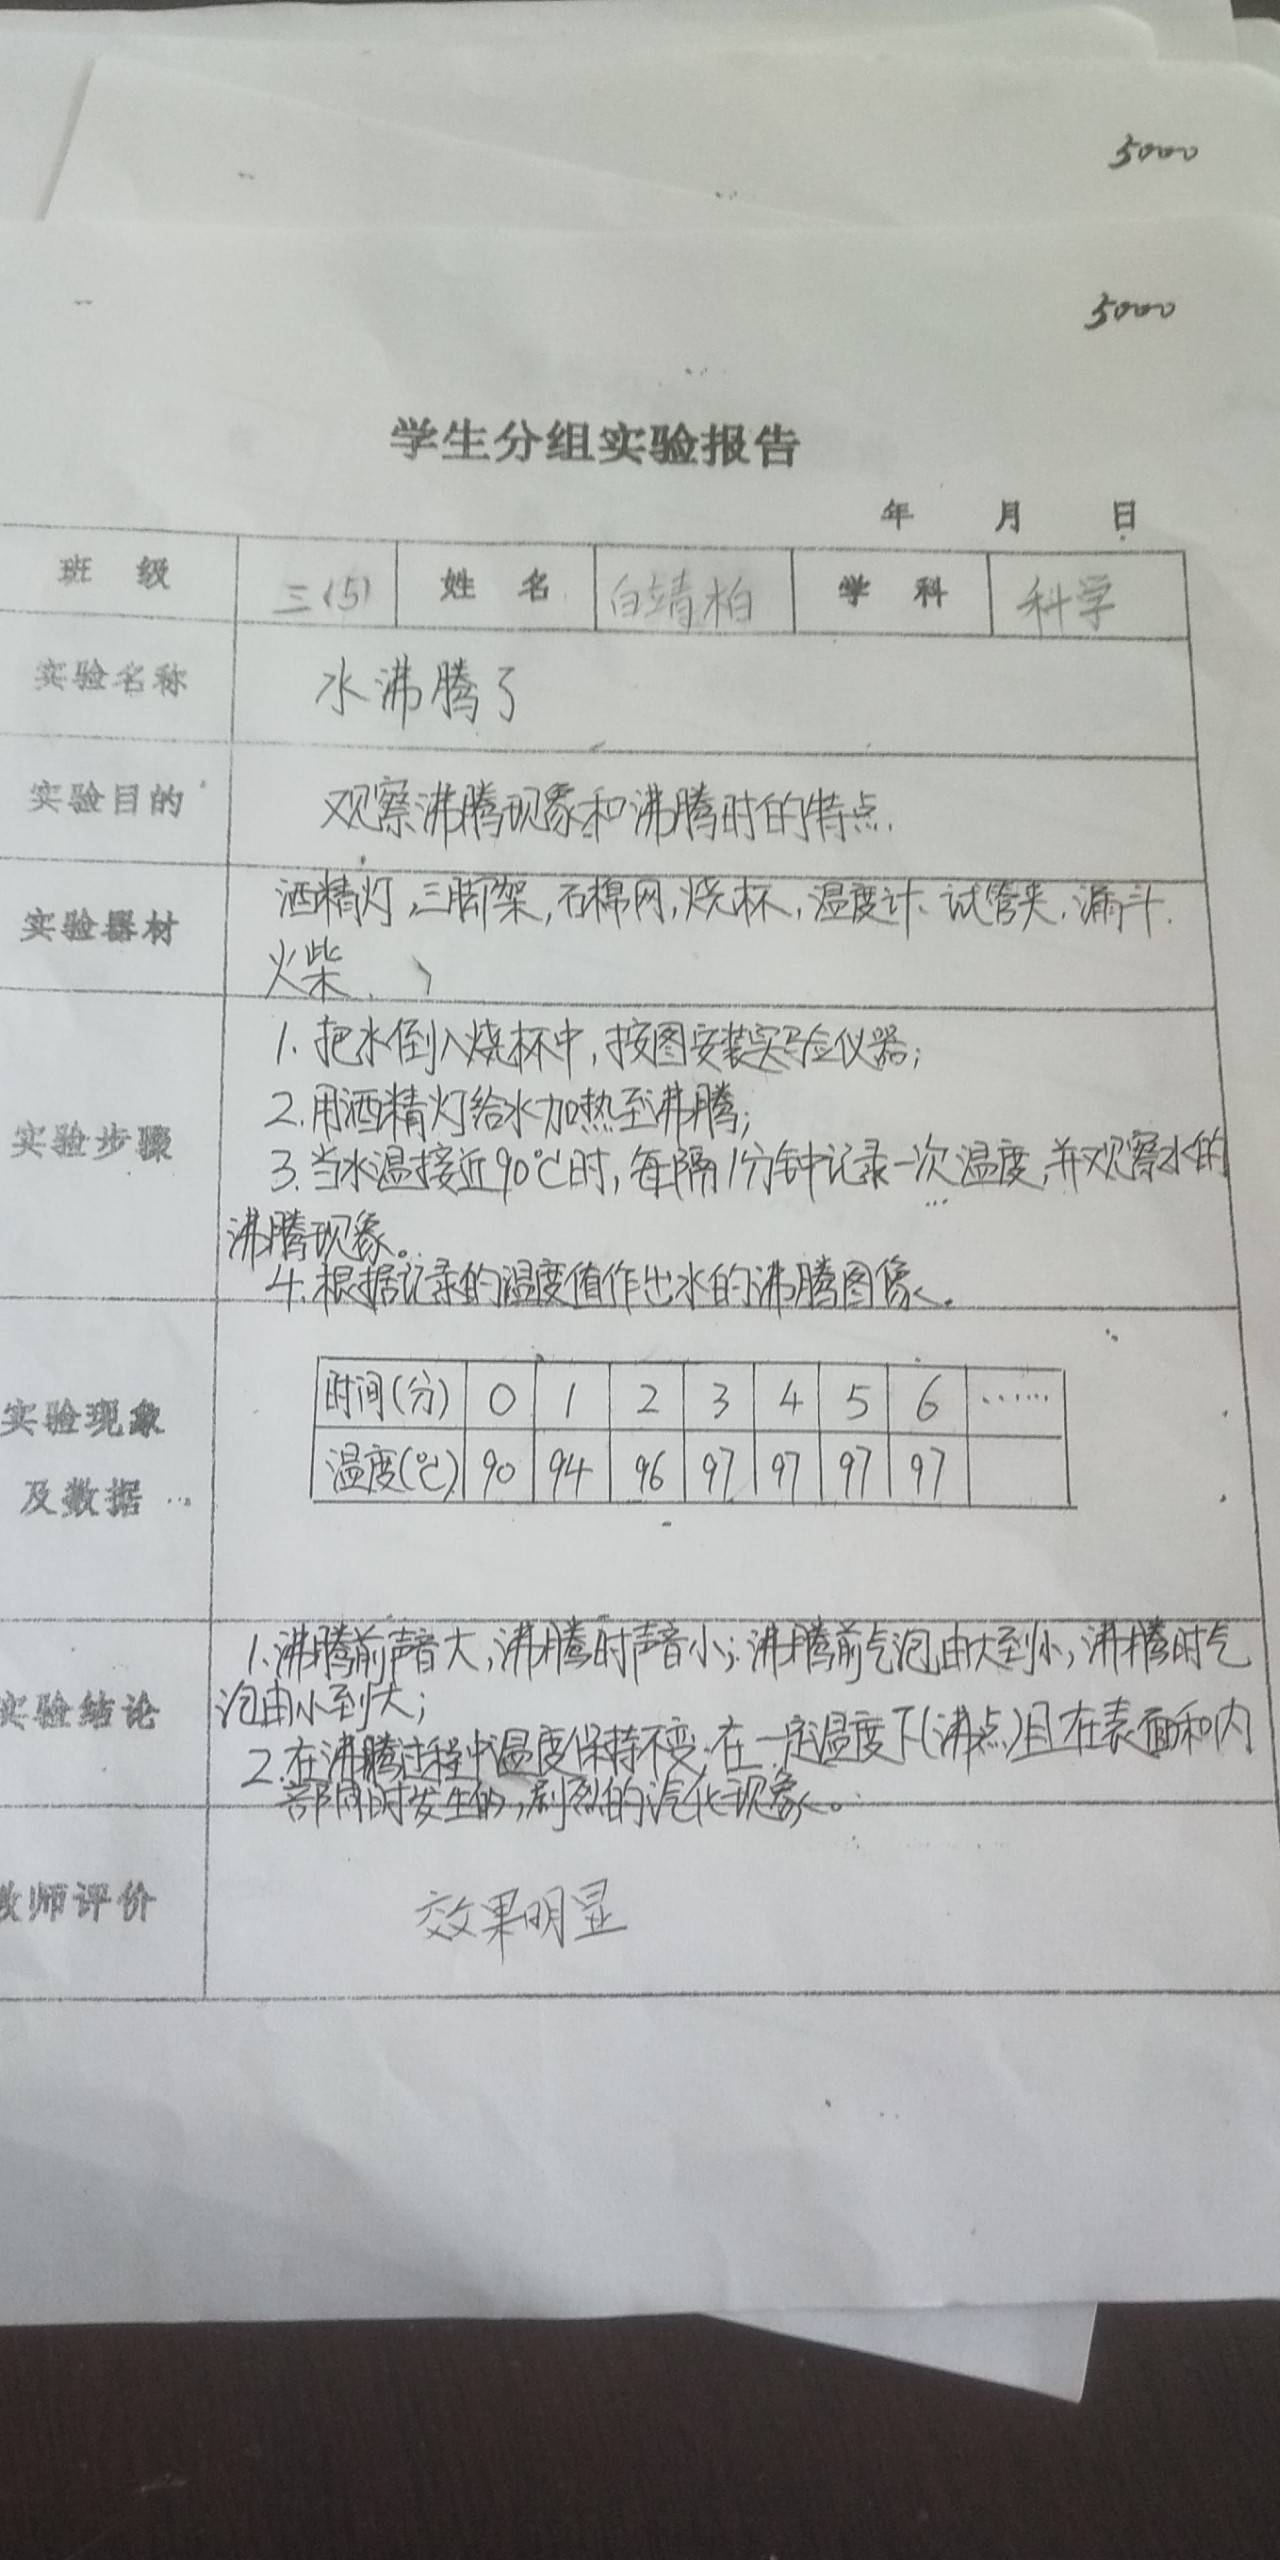 5000
5000
学生分组实验报告
年 月 日
班 级 三(5) 姓 名 白靖柏 学 科 科学
实验名称 水沸腾了
实验目的 观察沸腾现象和沸腾时的特点.
实验器材 酒精灯,三脚架,石棉网,烧杯,温度计、试管夹,漏斗.
火柴、
1. 把水倒入烧杯中,按图安装实验仪器;
2. 用酒精灯给水加热至沸腾;
实验步骤
3. 当水温接近90℃时,每隔1分钟记录一次温度,并观察水的
沸腾现象。
4. 根据记录的温度值作出水的沸腾图像.
实验现象
及数据
时间(分) 0 1 2 3 4 5 6 ……
温度(℃) 90 94 96 97 97 97 97
1. 沸腾前声音大,沸腾时声音小;沸腾前气泡由大到小,沸腾时气
实验结论
泡由小到大;
2. 在沸腾过程中温度保持不变,在一定温度下(沸点)且在表面和内
部同时发生的,剧烈的汽化现象。
教师评价 效果明显